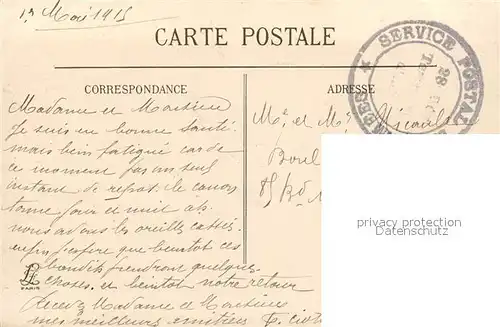 13 Mai 1915
CARTE POSTALE
SERVICE POSTAL
28
CORRESPONDANCE
ADRESSE
Madame et Monsieur
Je suis en bonne Santé.
mais bein fatigué car de
ce moment pas un seul
instant de repos. le canon
tonne jour et nuit ah.
nous avons les oreilles cassés.
enfin j'espere que bientot ces
bandits prendront quelque
choses. et bientot notre retour
Recevez Madame et Monsieur
mes meilleurs amitiées
Mr et Me
Boul
85 Bd
LL
PARIS
privacy protection
AK Ansichtskarten